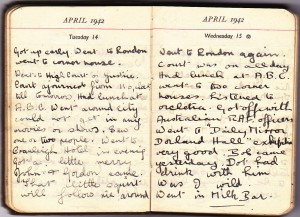 APRIL 1942
Tuesday 14
Got up early. Went to London
went to corner house.
Went to High Court of Justice.
Court adjourned from
till tomorrow. Had lunch at
A.B.C. Went around city
could not get in any
movies or shows. Saw
one or two people. Went to
Hotel in evening
Got a little merry
John & Gordon came.
that little squirt
will follow me around
APRIL 1942
Wednesday 15
Went to London again.
Court was on all day
Had lunch at A.B.C.
went to two corner
houses. Listened to
orchestra. Got off with
Australian R.A.F. officers
Went to "Daily Mirror
Dorland Hall" exhibition
very good. Pol came
yesterday. Dot had
drink with him
Was I wild
Went in Milk Bar.